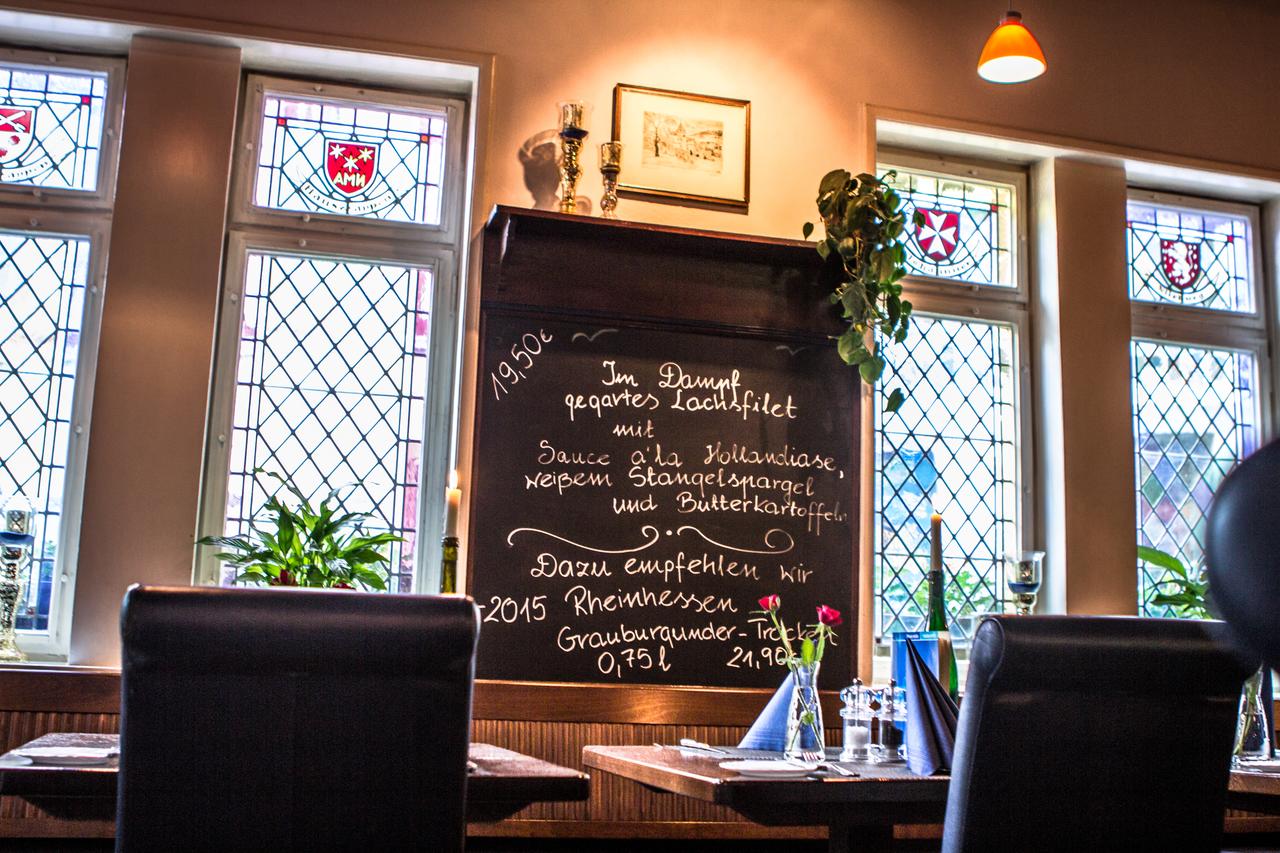 AMH
19,50€
Im Dampf
gegartes Lachsfilet
mit
Sauce a'la Hollandiase,
weißem Stangelspargel
und Butterkartoffeln
Dazu empfehlen wir
-2015 Rheinhessen -
Grauburgunder-Trocken
0,75l 21,90